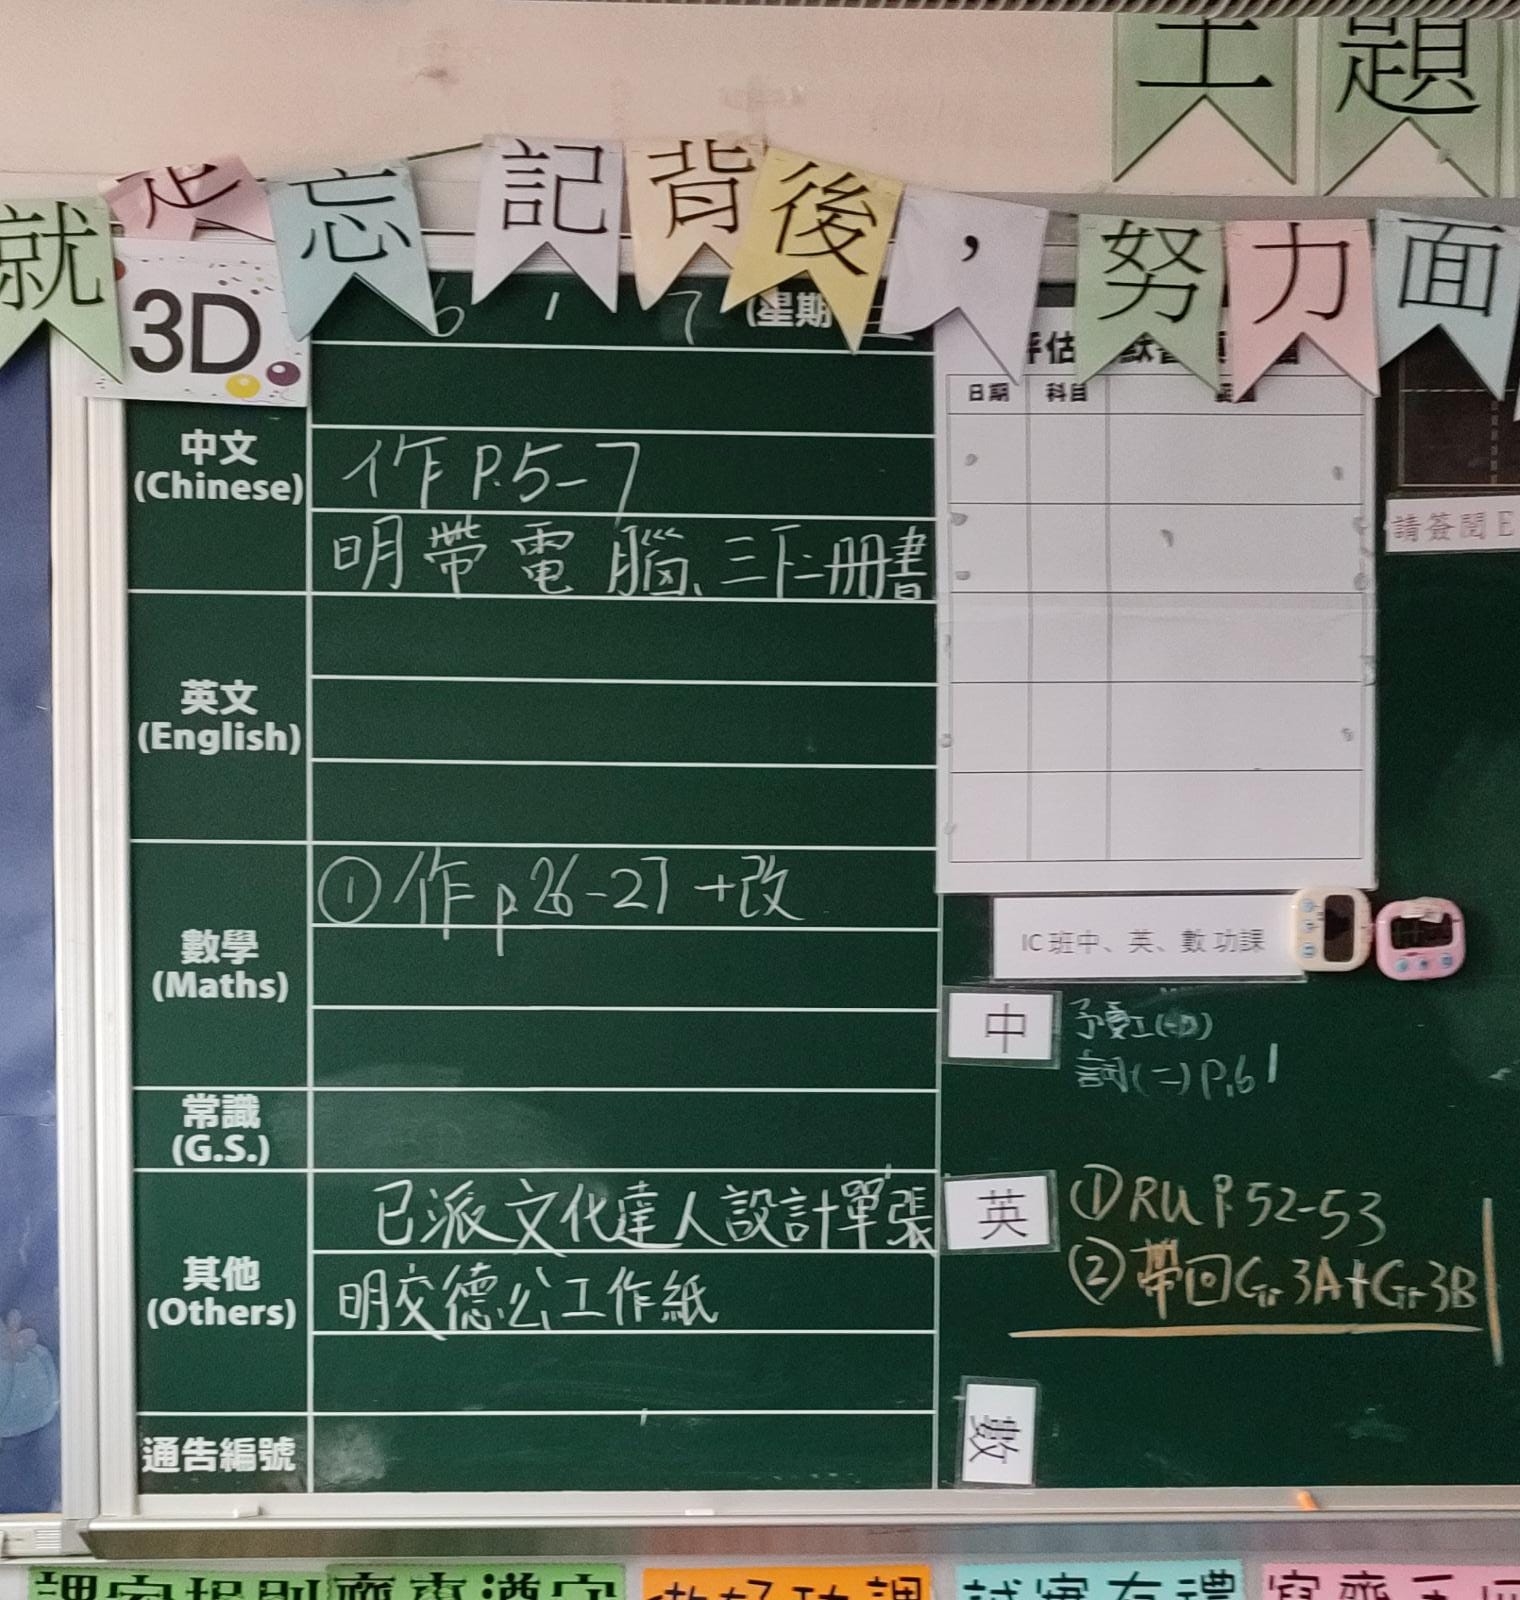 主題
就是忘記背後，努力面
3D
6 1 7 (星期
中文
(Chinese)
作 P.5-7
明帶電腦、三下二冊書
英文
(English)
數學
(Maths)
① 作 p.26-27 +改
常識
(G.S.)
其他
(Others)
已派文化達人設計單張
明交德公工作紙
通告編號
評估
日期 科目
請簽閱 E
IC 班中、英、數 功課
中
詞(二) P.61
英
① RU P.52-53
② 帶回Gr 3A+Gr 3B
數